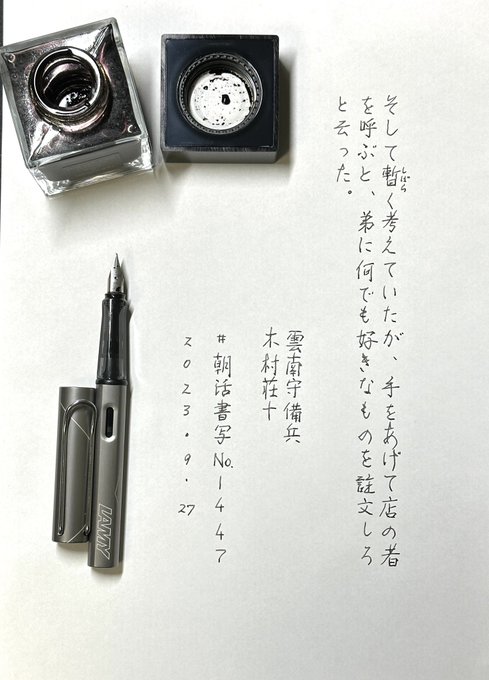 そして暫く考えていたが、手をあげて店の者
しばら
を呼ぶと、弟に何でも好きなものを註文しろ
と云った。
雲南守備兵
木村荘十
#朝活書写No.1447
2023.9.27
LAMY